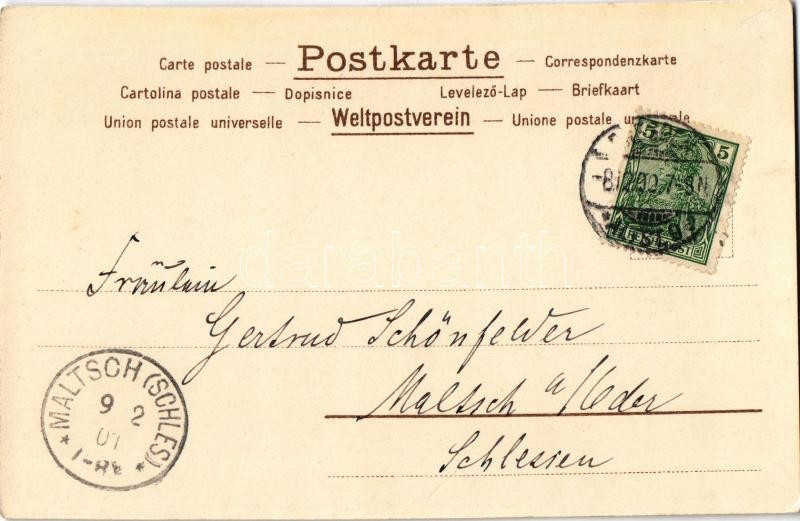 Carte postale — Postkarte — Correspondenzkarte
Cartolina postale — Dopisnice Levelező-Lap — Briefkaart
Union postale universelle — Weltpostverein — Unione postale
5 5
REICHSPOST
7-8N
Fräulein
Gertrud Schönfelder
Maltsch a/Oder
Schlesien
MALTSCH (SCHLES)
9 2
01
darabanth